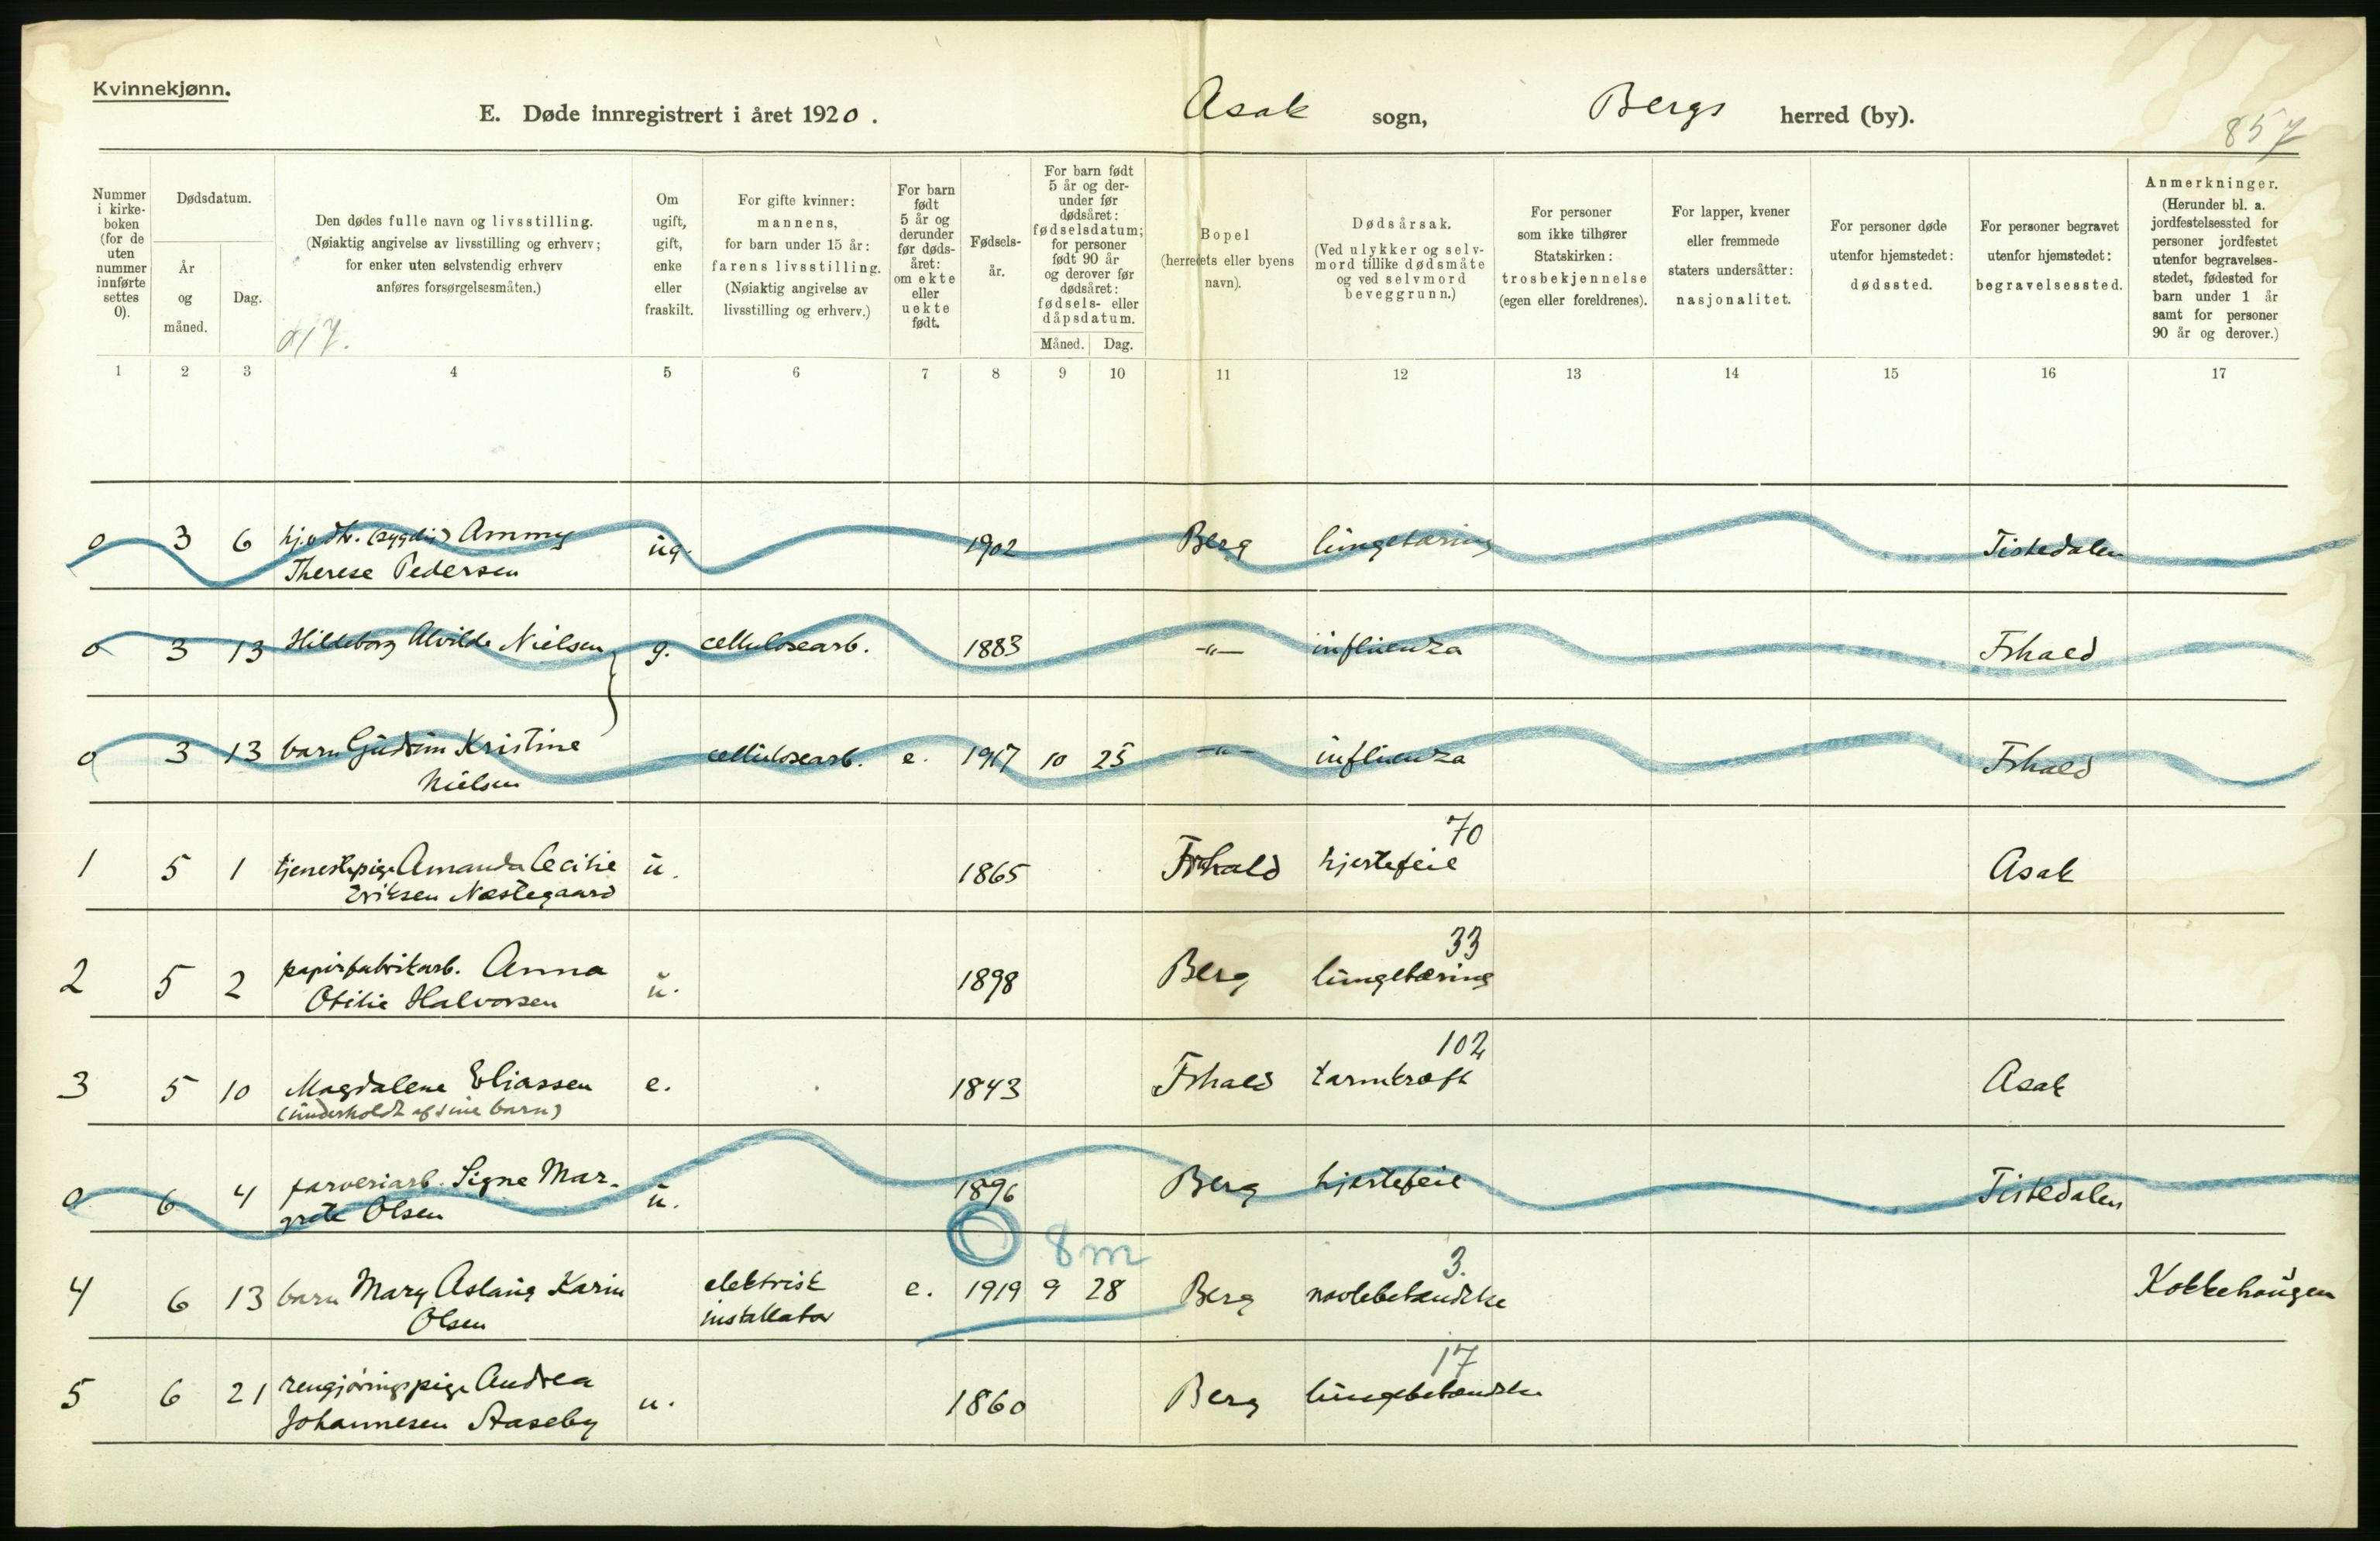 Kvinnekjønn.
E. Døde innregistrert i året 1920. Asak sogn, Bergs herred (by).
857
Nummer i kirke- boken (for de uten nummer innførte settes 0).
Dødsdatum.
År og måned.
Dag.
Den dødes fulle navn og livsstilling.
(Nøiaktig angivelse av livsstilling og erhverv;
for enker uten selvstendig erhverv
anføres forsørgelsesmåten.)
Om ugift, gift, enke eller fraskilt.
For gifte kvinner:
mannens,
for barn under 15 år:
farens livsstilling.
(Nøiaktig angivelse av
livsstilling og erhverv.)
For barn født 5 år og derunder før døds- året: om ekte eller uekte født.
Fødsels- år.
For barn født 5 år og der- under før dødsåret: fødselsdatum; for personer født 90 år og derover før dødsåret: fødsels- eller dåpsdatum.
Måned. Dag.
Bopel
(herredets eller byens
navn).
Dødsårsak.
(Ved ulykker og selv-
mord tillike dødsmåte
og ved selvmord
beveggrunn.)
For personer
som ikke tilhører
Statskirken:
trosbekjennelse
(egen eller foreldrenes).
For lapper, kvener
eller fremmede
staters undersåtter:
nasjonalitet.
For personer døde
utenfor hjemstedet:
dødssted.
For personer begravet
utenfor hjemstedet:
begravelsessted.
Anmerkninger.
(Herunder bl. a.
jordfestelsessted for
personer jordfestet
utenfor begravelses-
stedet, fødested for
barn under 1 år
samt for personer
90 år og derover.)
1 2 3 4 5 6 7 8 9 10 11 12 13 14 15 16 17
0 3 6 Ammy ug. 1902 Berg lungetæring Tistedalen
Therese Pedersen
0 3 13 Hildeborg Alvilde Nielsen g. cellulosearb. 1883 -"- influenza Frhald
0 3 13 barn Gudrun Kristine cellulosearb. e. 1917 10 25 -"- influenza Frhald
Nielsen
70
1 5 1 tjenestepige Amanda Cecilie u. 1865 Frhald hjertefeil Asak
Eriksen Næstegaard
33
2 5 2 papirfabrikarb. Anna u. 1898 Berg lungetæring
Otilie Halvorsen
102
3 5 10 Magdalene Eliassen e. 1843 Frhald tarmkræft Asak
(underholdt af sine barn)
0 6 4 farveriarb. Signe Mar- u. 1896 Berg hjertefeil Tistedalen
grete Olsen
8 m
3.
4 6 13 barn Mary Aslaug Karin elektrisk e. 1919 9 28 Berg navlebetændelse Kokkehaugen
Olsen installatør
17
5 6 21 rengjøringspige Andrea u. 1860 Berg lungebetændelse
Johannesen Aaseby